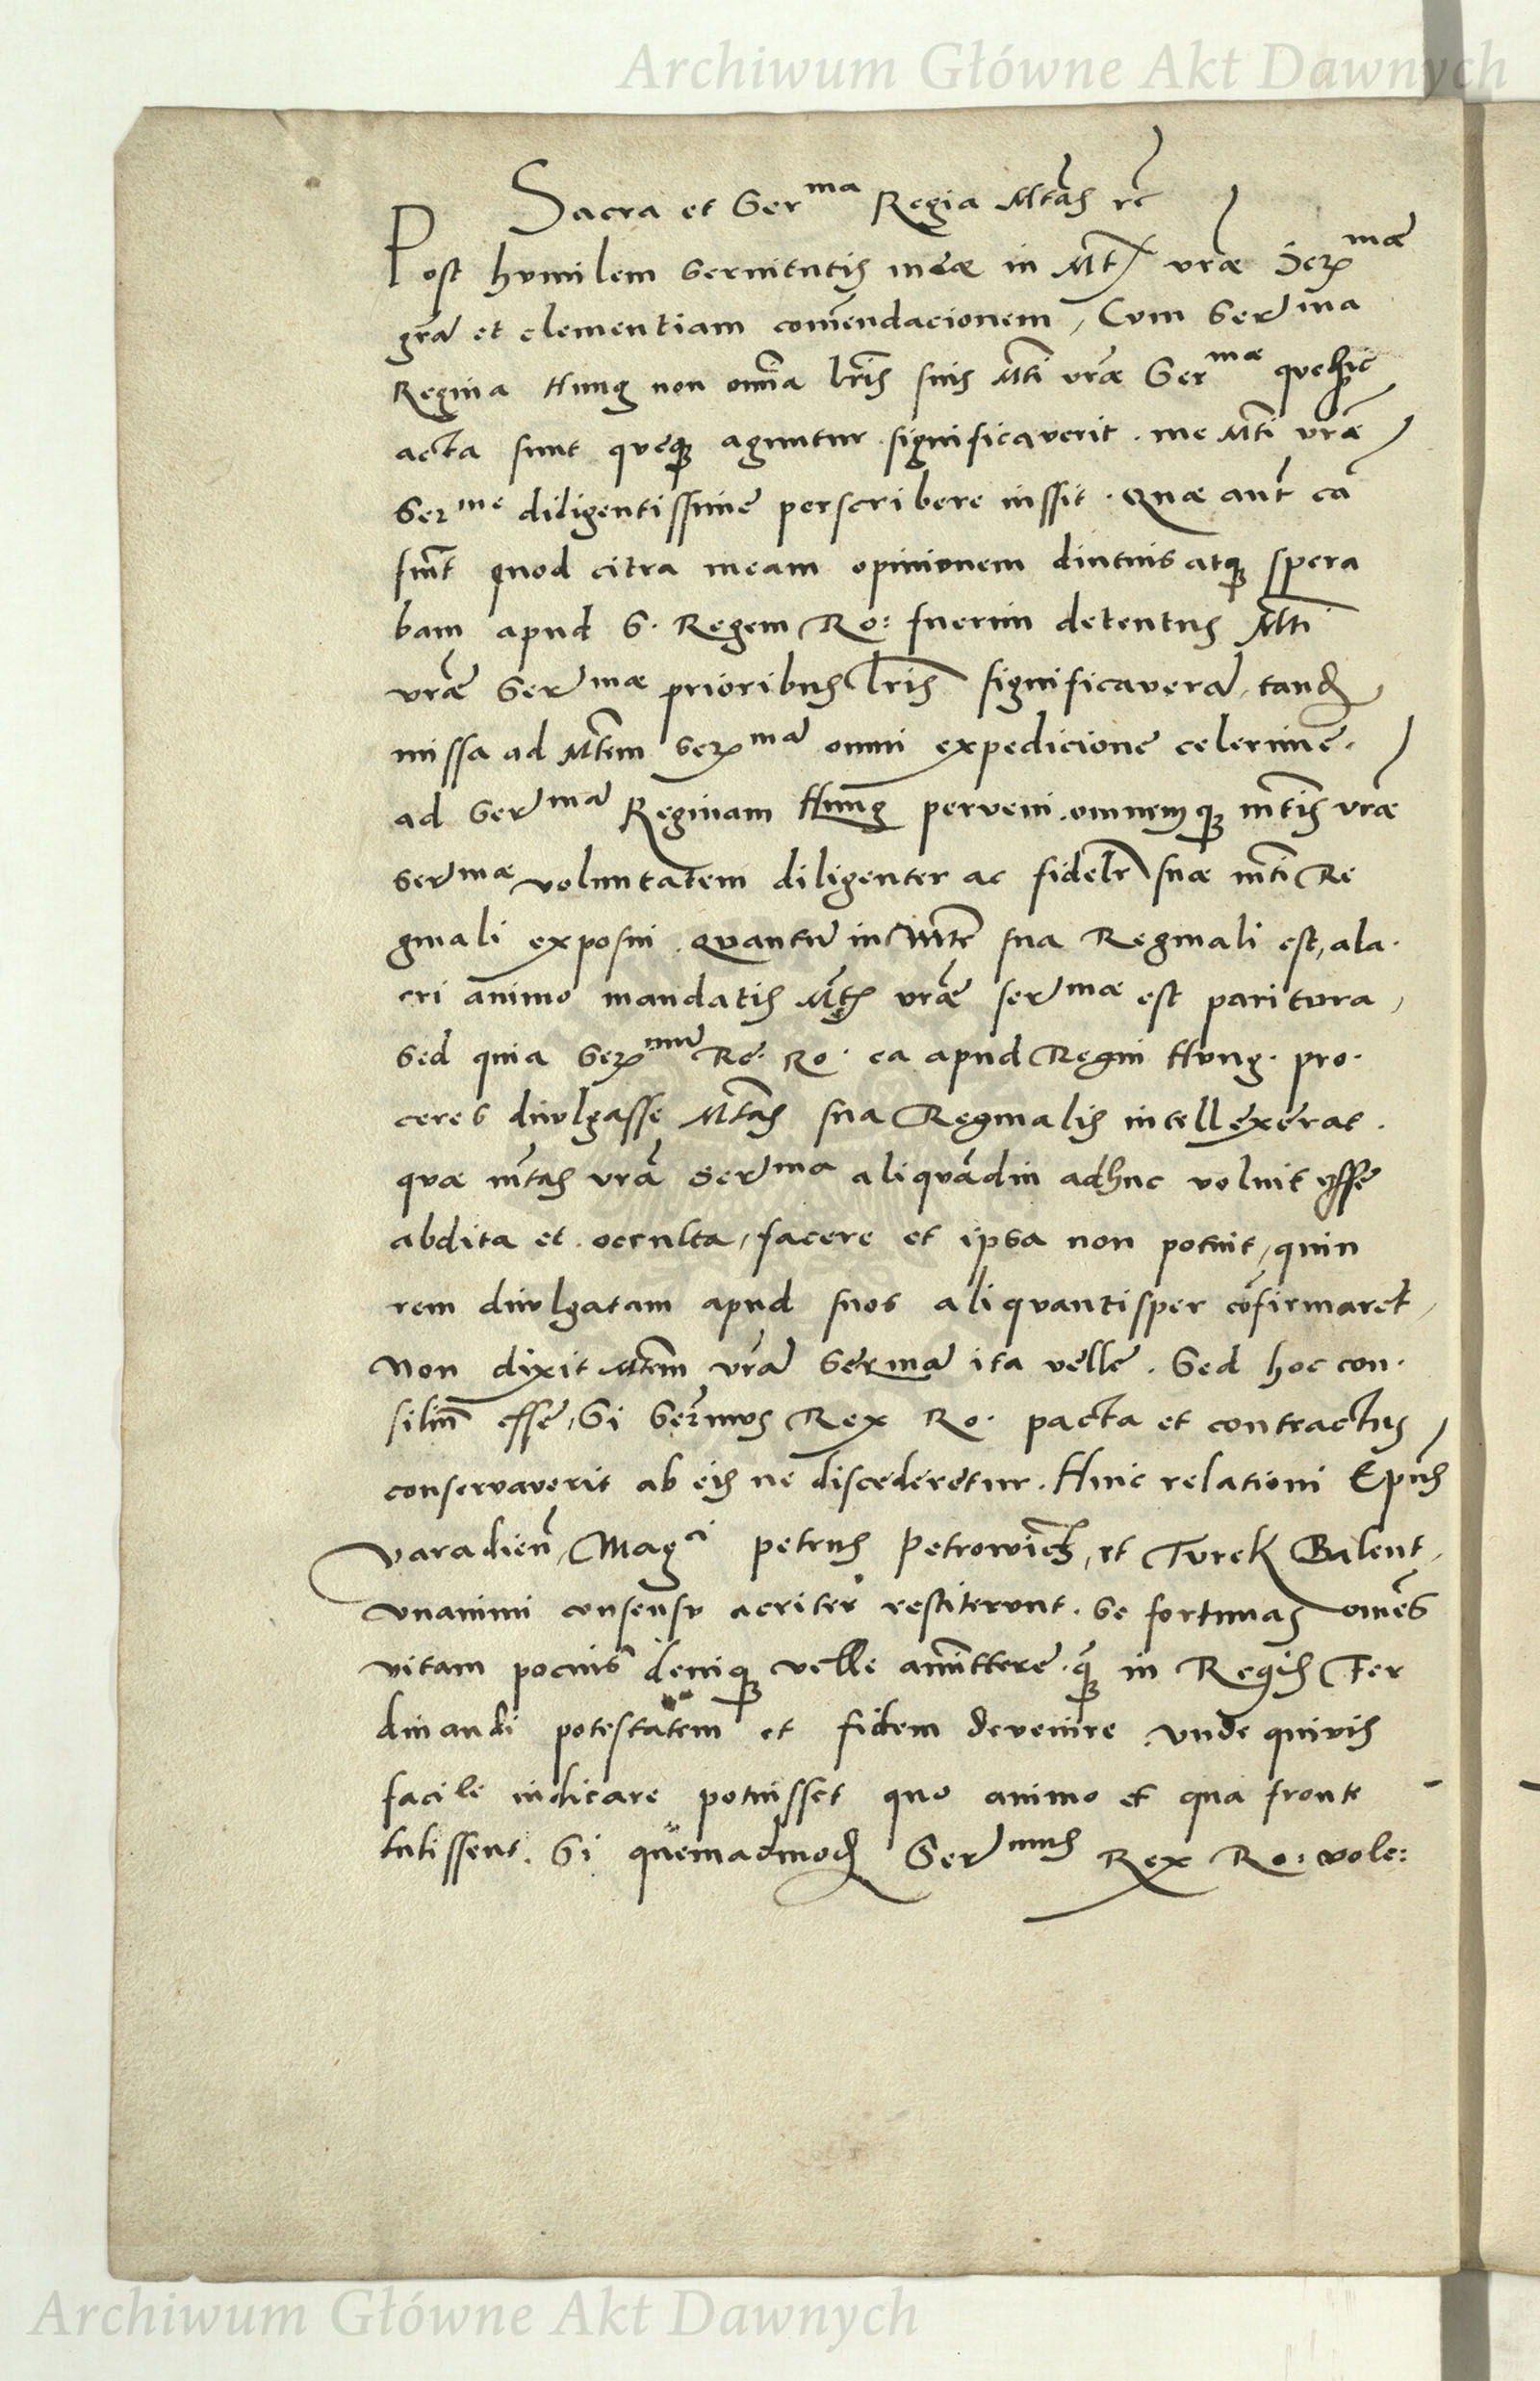 Archiwum Główne Akt Dawnych
Sacra et Ser^ma Regia Mtas rc
Post humilem servitutis meæ in Mt͛ vrae Ser^mæ
gra͛ et clementiam com̃endacionem, Cum Ser^ma
Regina Hung non om̃ia lr̃is suis Mti vræ Ser^mæ que hic
acta sunt queq; aguntur significaverit. me Mti vræ
Ser^me diligentissime perscribere iussit. Quæ aut̃ cã
fuit quod citra meam opinionem diutius atq; spera
bam apud S. Regem Ro: fuerim detentus Mti
vræ Ser^mæ prioribus lr̃is significaverã, tandẽ
missa ad Mtem Ser^mã omni expedicione celerime.
ad Ser^mã Reginam Hung perveni. omnemq; mtis vræ
Ser^mæ voluntatem diligenter ac fidelr̃ suæ mti Re
ginali exposui. Quantũ in Mte sua Reginali est, ala.
cri animo mandatis Mt͛ vræ ser^mæ est paritura,
Sed quia Ser^mũ Re. Ro. ea apud Regni Hung. pro.
ceres divulgasse Mtas sua Reginalis intellexerat.
quæ mtas vrã Ser^ma aliquãdiu adhuc voluit esse
abdita et occulta, facere et ipsa non potuit, quin
rem divulgatam apud suos aliquantisper cõfirmaret,
Non dixit Mtem vrã Sermã ita velle. Sed hoc con.
siliũ esse, Si Sermus Rex Ro. pacta et contractus
conservaverit ab eis ne discederetur. Huic relationi Ep̃us
Varadieñ, Mag^ci Petrus Petrowicz, et Turek Balent.
unanimi consensu acriter restiterunt. Se fortunas om̃es
vitam pocius deniq; velle amittere. q̃; in Regis Fer
dinandi potestatem et fidem devenire. Unde quivis
facile iudicare potuisset quo animo et qua fronte
tulissent. Si quemadmodũ Ser^mus Rex Ro: vole:
Archiwum Główne Akt Dawnych